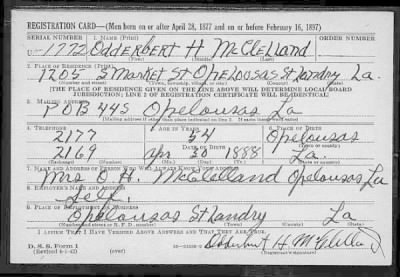 REGISTRATION CARD—(Men born on or after April 28, 1877 and on or before February 16, 1897)
SERIAL NUMBER 1. NAME (Print) ORDER NUMBER
U-1772 Odderbert H McClelland
(First) (Middle) (Last)
2. PLACE OF RESIDENCE (Print)
1205 S Market St Opelousas St Landry La.
(Number and street) (Town, township, village, or city) (County) (State)
[THE PLACE OF RESIDENCE GIVEN ON THE LINE ABOVE WILL DETERMINE LOCAL BOARD
JURISDICTION; LINE 2 OF REGISTRATION CERTIFICATE WILL BE IDENTICAL]
3. MAILING ADDRESS
POB 445 Opelousas La
[Mailing address if other than place indicated on line 2. If same insert word same]
4. TELEPHONE 5. AGE IN YEARS 6. PLACE OF BIRTH
2177 54 Opelousas
DATE OF BIRTH (Town or county)
2169 Apr 30 1888 La.
(Exchange) (Number) (Mo.) (Day) (Yr.) (State or country)
7. NAME AND ADDRESS OF PERSON WHO WILL ALWAYS KNOW YOUR ADDRESS
Mrs O. H. McClelland Opelousas La
8. EMPLOYER'S NAME AND ADDRESS
Self.
9. PLACE OF EMPLOYMENT OR BUSINESS
Opelousas St Landry La
(Number and street or R. F. D. number) (Town) (County) (State)
I AFFIRM THAT I HAVE VERIFIED ABOVE ANSWERS AND THAT THEY ARE TRUE.
D. S. S. Form 1
(Revised 4-1-42) (over) Odderbert H McClelland